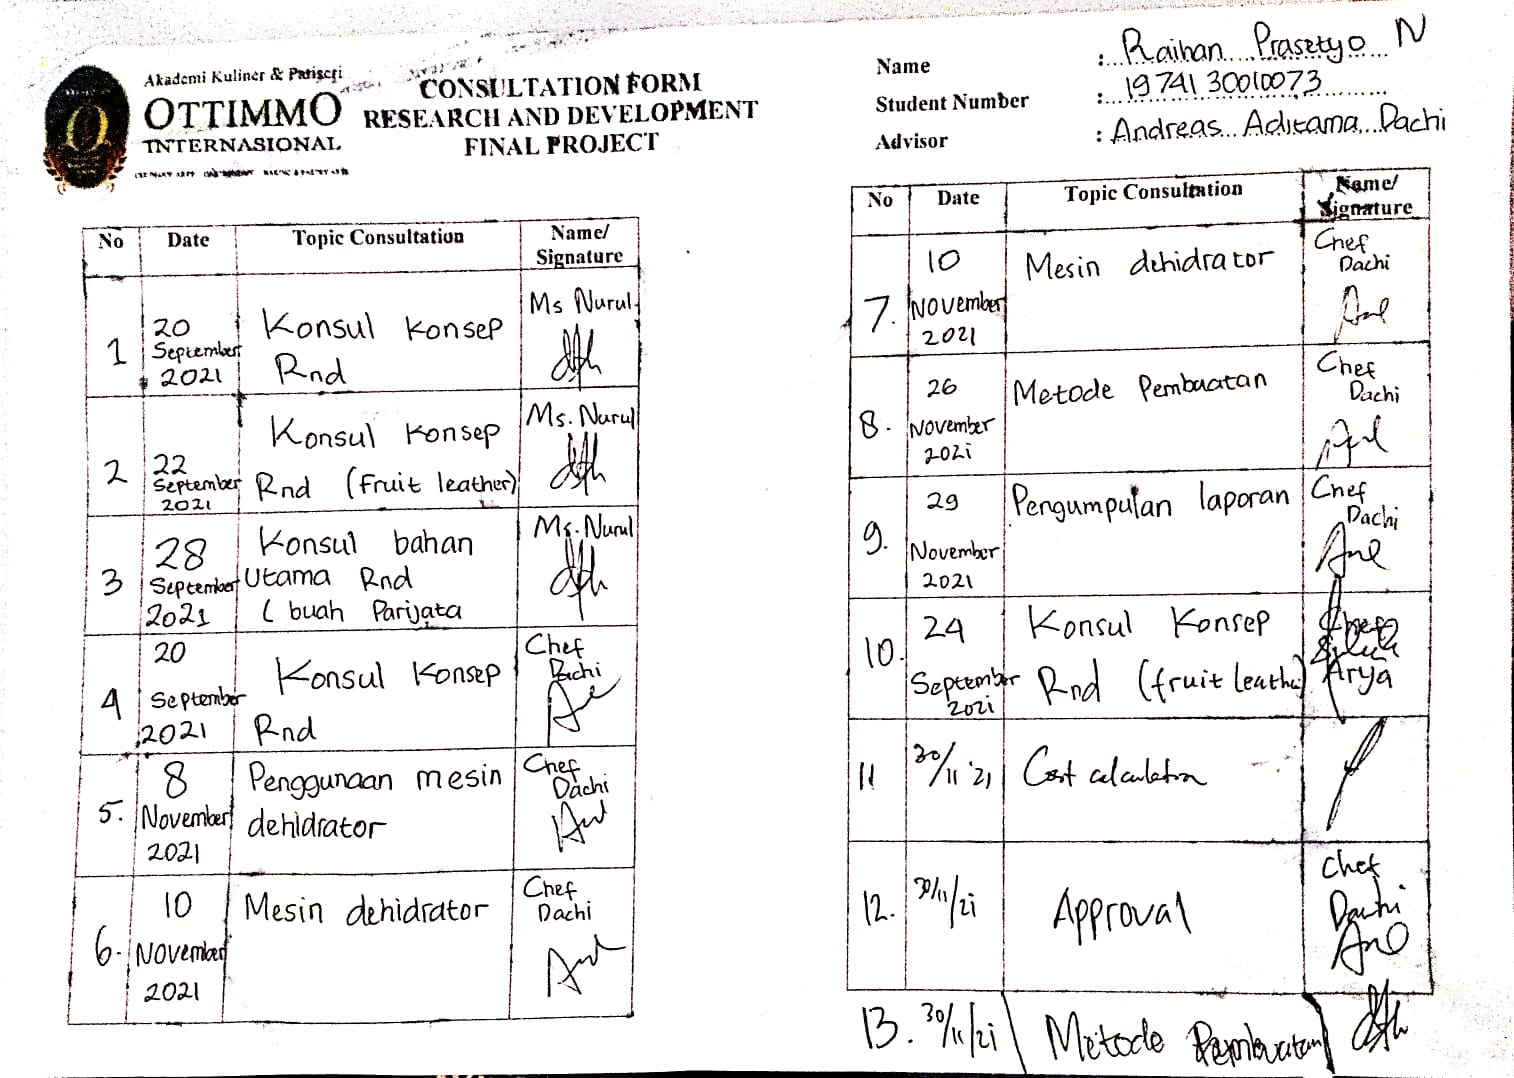 Akademi Kuliner & Patiseri
OTTIMMO
INTERNASIONAL
CONSULTATION FORM
RESEARCH AND DEVELOPMENT
FINAL PROJECT
Name : Raihan Prasetyo N
Student Number : 1974130010073
Advisor : Andreas Aditama Dachi
No Date Topic Consultation Name/
Signature
1 20 September 2021 Konsul Konsep Ms Nurul
Rnd
2 22 September 2021 Konsul Konsep Ms. Nurul
Rnd (Fruit leather)
3 28 September 2021 Konsul bahan Ms. Nurul
Utama Rnd
( buah Parijata
4 20 September 2021 Konsul Konsep Chef Dachi
Rnd
5. 8 November 2021 Penggunaan mesin Chef Dachi
dehidrator
6. 10 November 2021 Mesin dehidrator Chef Dachi
No Date Topic Consultation Name/
Signature
7. 10 November 2021 Mesin dehidrator Chef Dachi
8. 26 November 2021 Metode Pembuatan Chef Dachi
9. 29 November 2021 Pengumpulan laporan Chef Dachi
10. 24 September 2021 Konsul Konsep Arya
Rnd (fruit leather)
11 30/11 '21 Cost calculation
12. 30/11/21 Approval Chef Dachi
13. 30/11/21 Metode Pembuatan